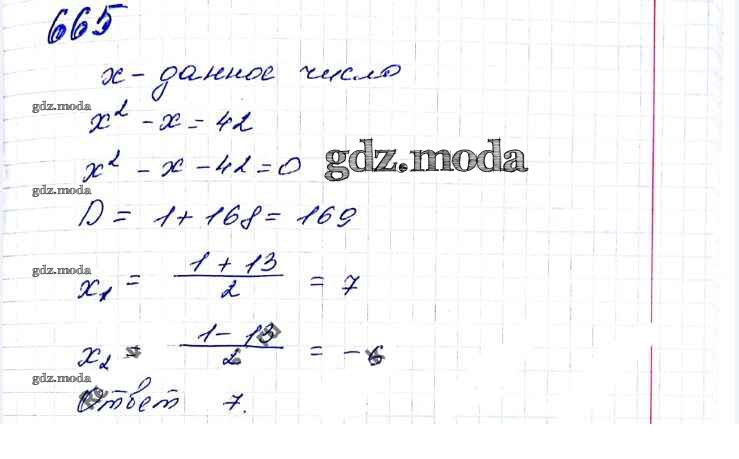 665
x - данное число
gdz.moda
x² - x = 42
x² - x - 42 = 0
gdz.moda
gdz.moda
D = 1 + 168 = 169
gdz.moda
x₁ = (1 + 13)/2 = 7
x₂ = (1 - 13)/2 = -6
gdz.moda
Ответ 7.